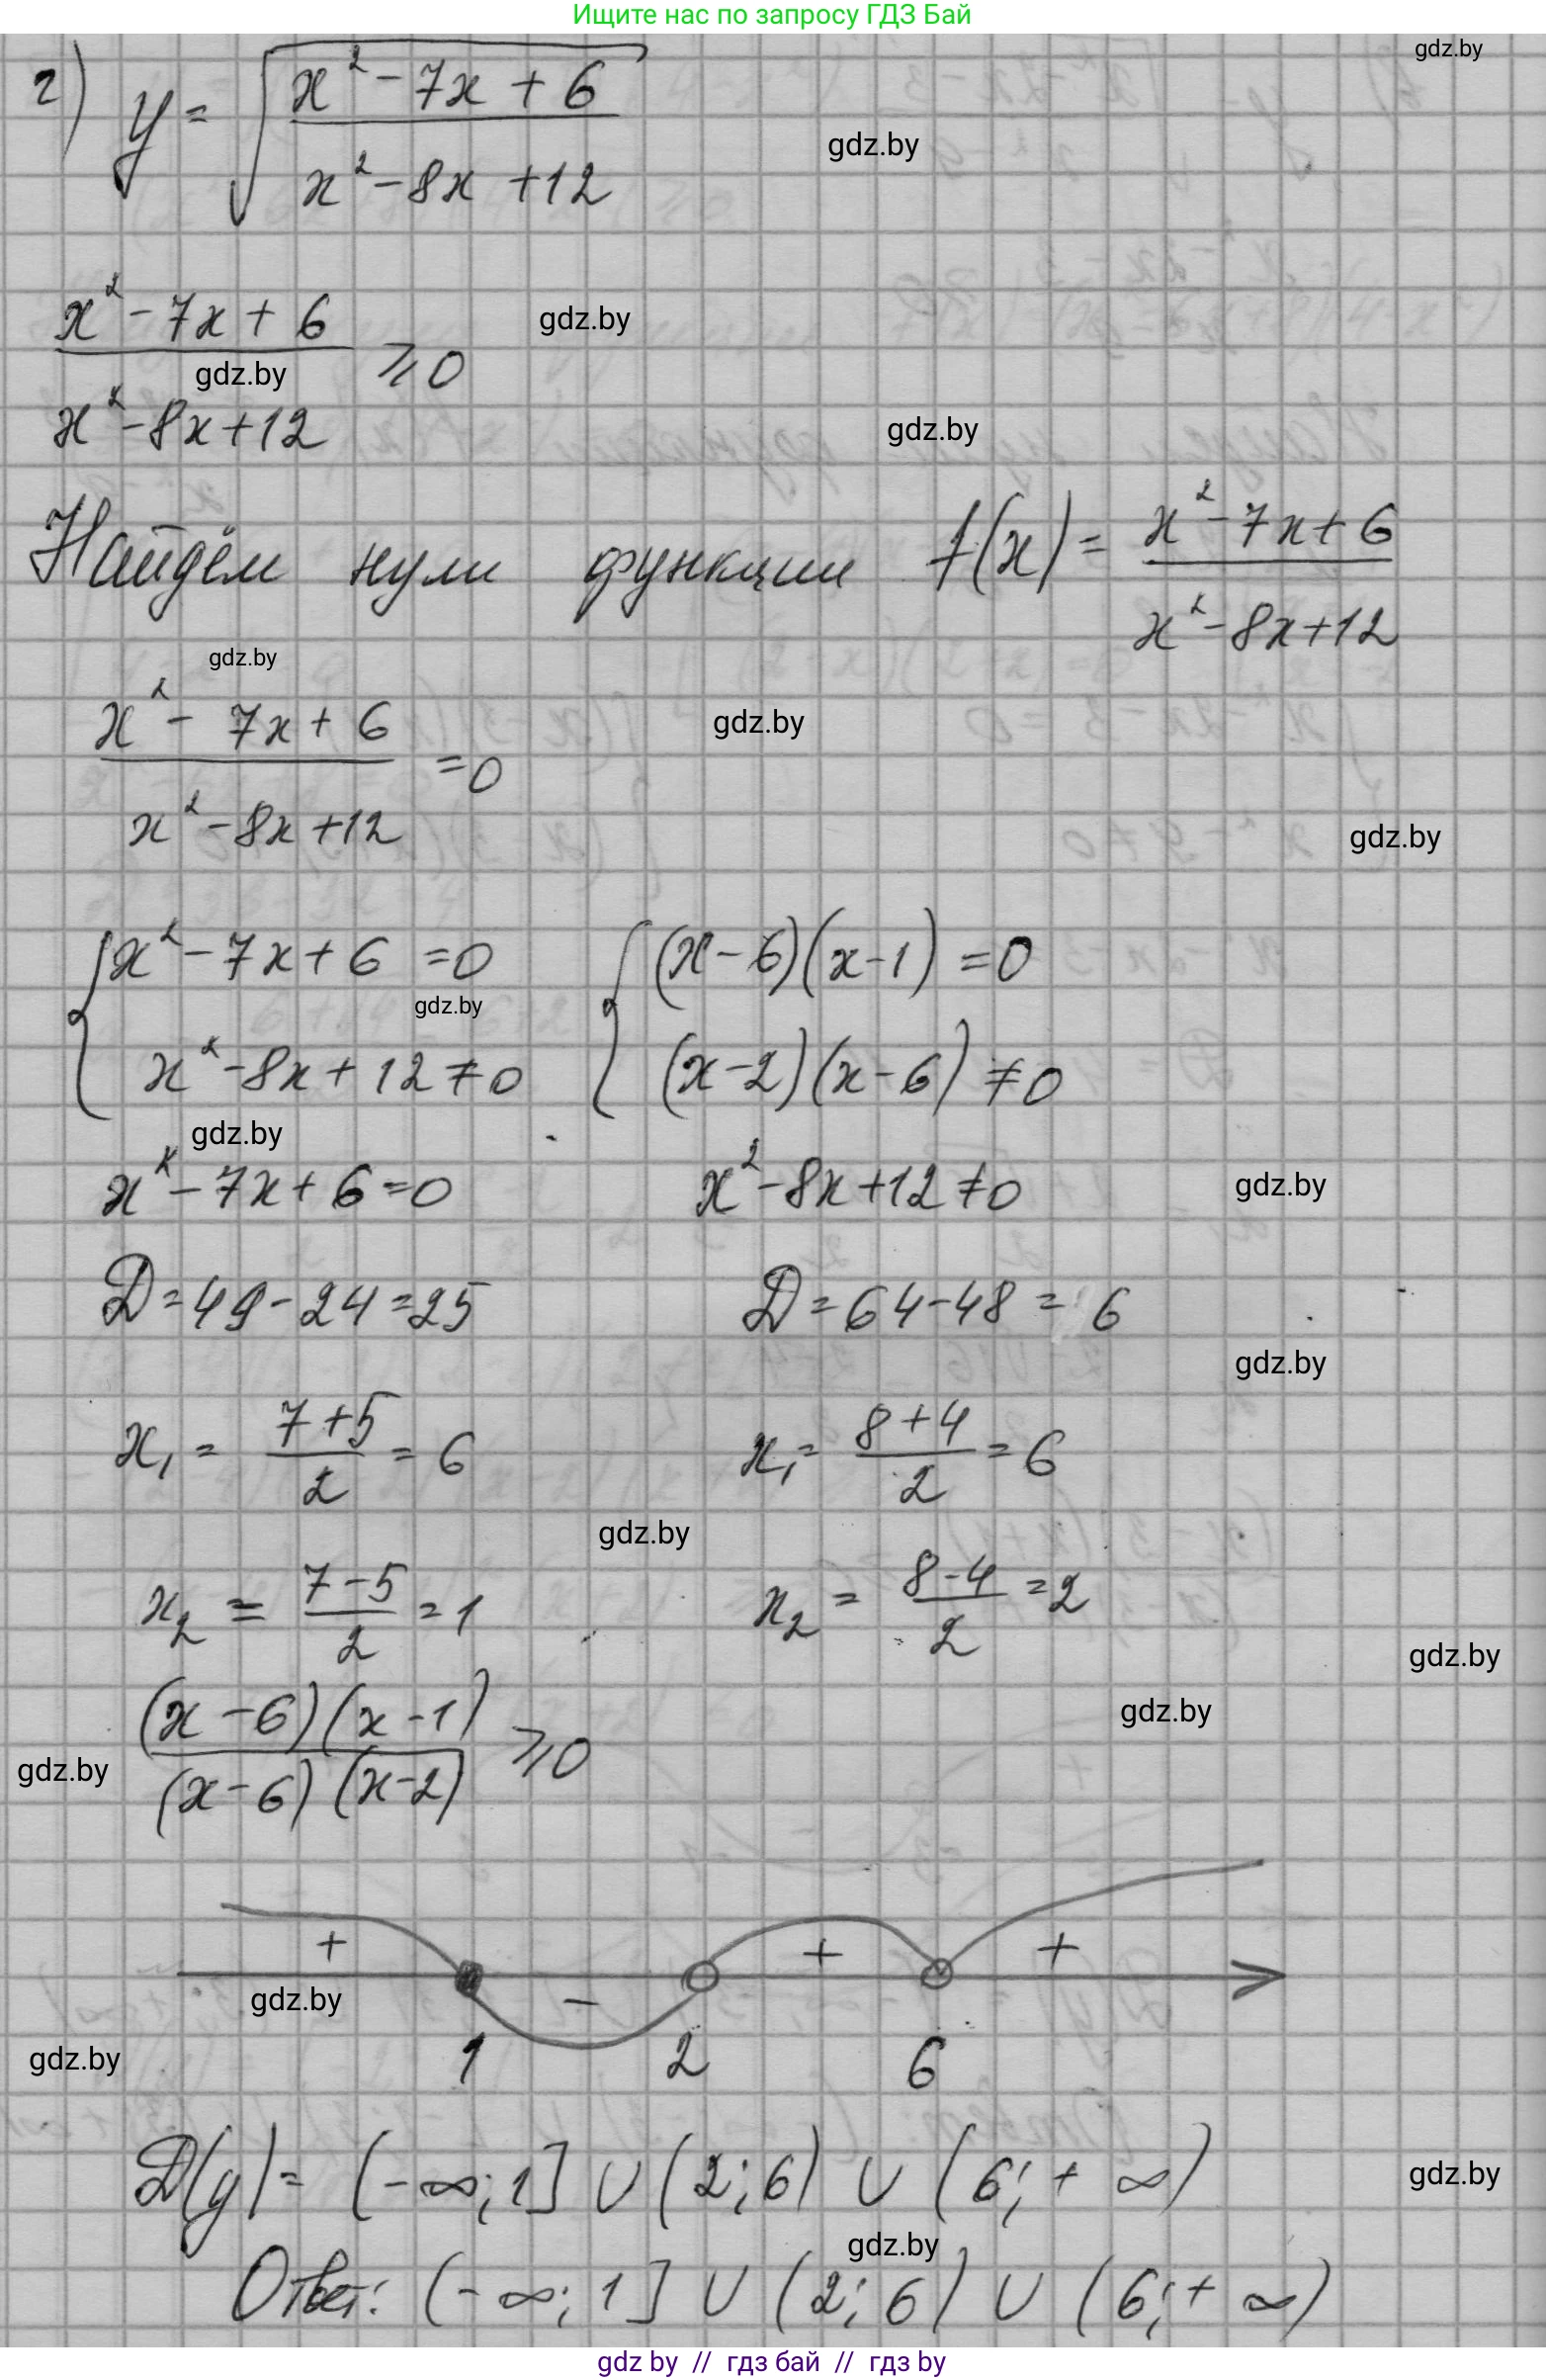 Ищите нас по запросу ГДЗ Бай
gdz.by
г) y = √((x² - 7x + 6)/(x² - 8x + 12))
gdz.by
x² - 7x + 6
gdz.by
gdz.by
⩾ 0
x² - 8x + 12
gdz.by
Найдём нули функции f(x) = (x² - 7x + 6)/(x² - 8x + 12)
gdz.by
x² - 7x + 6
gdz.by
= 0
x² - 8x + 12
gdz.by
{ x² - 7x + 6 = 0 { (x - 6)(x - 1) = 0
gdz.by
x² - 8x + 12 ≠ 0 (x - 2)(x - 6) ≠ 0
gdz.by
x² - 7x + 6 = 0 x² - 8x + 12 ≠ 0
gdz.by
D = 49 - 24 = 25 D = 64 - 48 = 6
gdz.by
x₁ = (7 + 5)/2 = 6 x₁ = (8 + 4)/2 = 6
gdz.by
x₂ = (7 - 5)/2 = 1 x₂ = (8 - 4)/2 = 2
gdz.by
gdz.by
(x - 6)(x - 1)
gdz.by
⩾ 0
(x - 6)(x - 2)
+ - + +
gdz.by
gdz.by
1 2 6
D(y) = (-∞; 1] ∪ (2; 6) ∪ (6; + ∞)
gdz.by
gdz.by
Ответ: (-∞; 1] ∪ (2; 6) ∪ (6; + ∞)
gdz by // гдз бай // гдз by